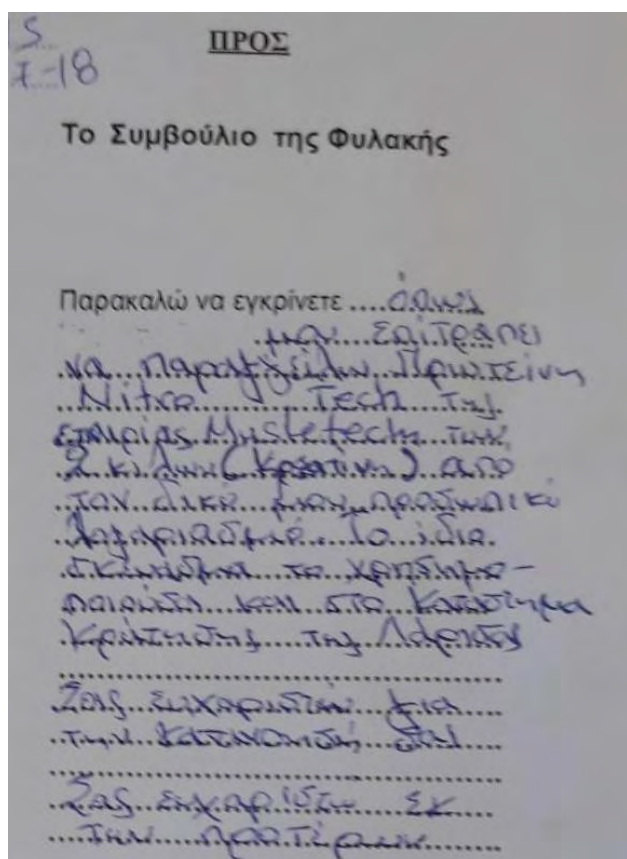 S
7-18
ΠΡΟΣ
Το Συμβούλιο της Φυλακής
Παρακαλώ να εγκρίνετε όπως
μου επιτραπεί
να παραγγείλω Πρωτείνη
Nitro Tech της
εταιρίας Musletech των
2 κιλών (Κρεατίνη) από
τον δικό μου προσωπικό
λογαριασμό. Το ίδιο
σκεύασμα το χρησιμο-
ποιούσα και στο Κατάστημα
Κράτησης της Λάρισας
Σας ευχαριστώ για
την κατανόηση σας
Σας ευχαριστώ εκ
των προτέρων